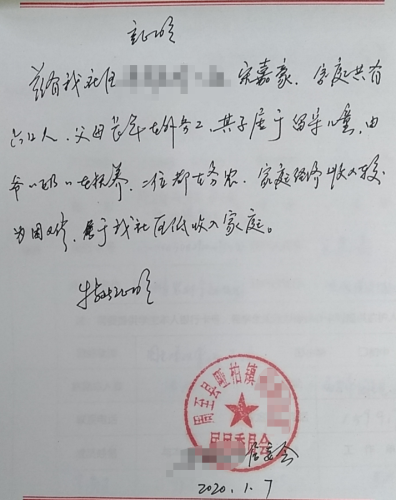 证明
兹有我社区 宋嘉豪,家庭共有
六口人,父母长年在外务工,其子属于留守儿童,由
爷奶在扶养,二位都务农,家庭经济收入较
为困难,属于我社区低收入家庭。
特此证明
周至县哑柏镇
居民委员会
居委会
2020.1.7